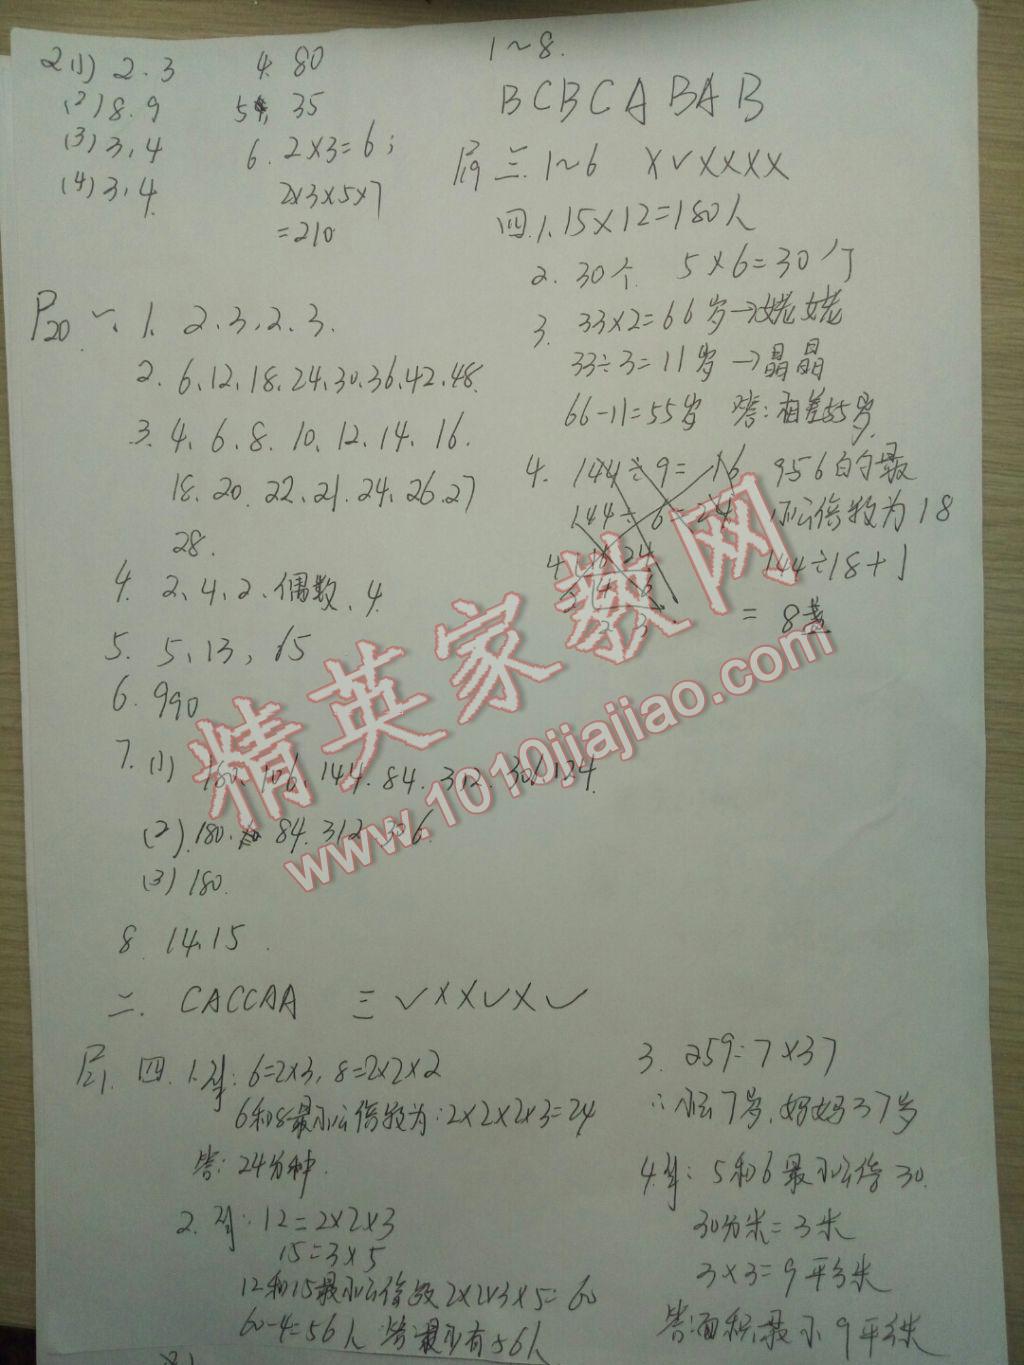 2(1) 2.3
(2) 8.9
(3) 3,4
(4) 3,4.
4. 80
5. 35
6. 2×3=6;
2×3×5×7
=210
1~8.
BCBCA BAB
P19 三.1~6 ×✓××××
四.1.15×12=180人
2. 30个 5×6=30个
3. 33×2=66岁→姥姥
33÷3=11岁→晶晶
66-11=55岁 答:相差55岁.
4. 144÷9=16 9与6的最
144÷6=24 小公倍数为18
144÷18+1
= 8盏
P20 一、1. 2.3,2.3.
2. 6、12、18、24、30、36、42、48.
3. 4、6、8、10、12、14、16.
18.20.22、21.24、26.27
28.
4. 2、4、2、偶数、4.
5. 5、13,65
6. 990
7. (1) 180、106、144.84.312.306.124.
(2) 180. 84.312.306.
(3) 180.
8. 14,15.
二. CACCAA 三 ✓××✓×✓
P21. 四.1.解:6=2×3,8=2×2×2
6和8最小公倍数为:2×2×2×3=24
答:24分钟.
2.解:12=2×2×3
15=3×5
12和15最小公倍数2×2×3×5=60
60-4=56人 答:最少有56人
3. 259=7×37
∴小云7岁,妈妈37岁
4.解:5和6最小公倍30.
30分米=3米
3×3=9平方米
答:面积最小9平方米
精英家教网
www.1010jiajiao.com